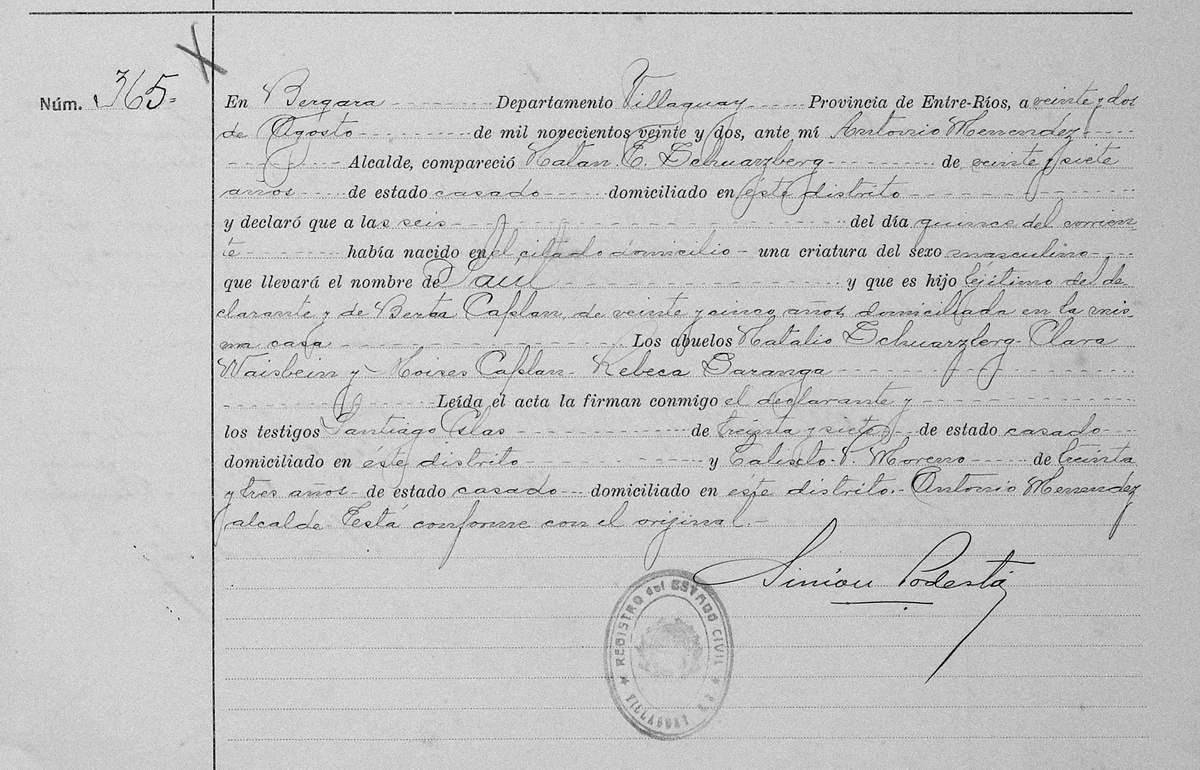 Núm. 365
En Bergara Departamento Villaguay Provincia de Entre-Ríos, a veinte y dos
de Agosto de mil novecientos veinte y dos, ante mi Antonio Menendez
Alcalde, compareció Natan E. Schuarzberg de veinte y siete
años de estado casado domiciliado en este distrito
y declaró que a las seis del día quince del corrien
te había nacido en el citado domicilio una criatura del sexo masculino
que llevará el nombre de Saul y que es hijo lejítimo del de
clarante y de Berta Caplan, de veinte y cinco años, domiciliada en la mis
ma casa Los abuelos Natalio Schuarzberg Clara
Waisbein y Moises Caplan Rebeca Saranga
Leída el acta la firman conmigo el declarante y
los testigos Santiago de treinta y siete de estado casado
domiciliado en éste distrito y Calisto V. Moreno de treinta
y tres años de estado casado domiciliado en éste distrito.- Antonio Menendez
alcalde Está conforme con el orijinal.-
Simon Podestá
REGISTRO del ESTADO CIVIL
VILLAGUAY E. R.